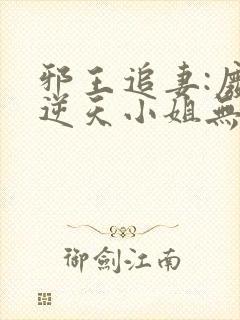 邪王追妻:
逆天小姐無
御劍江南